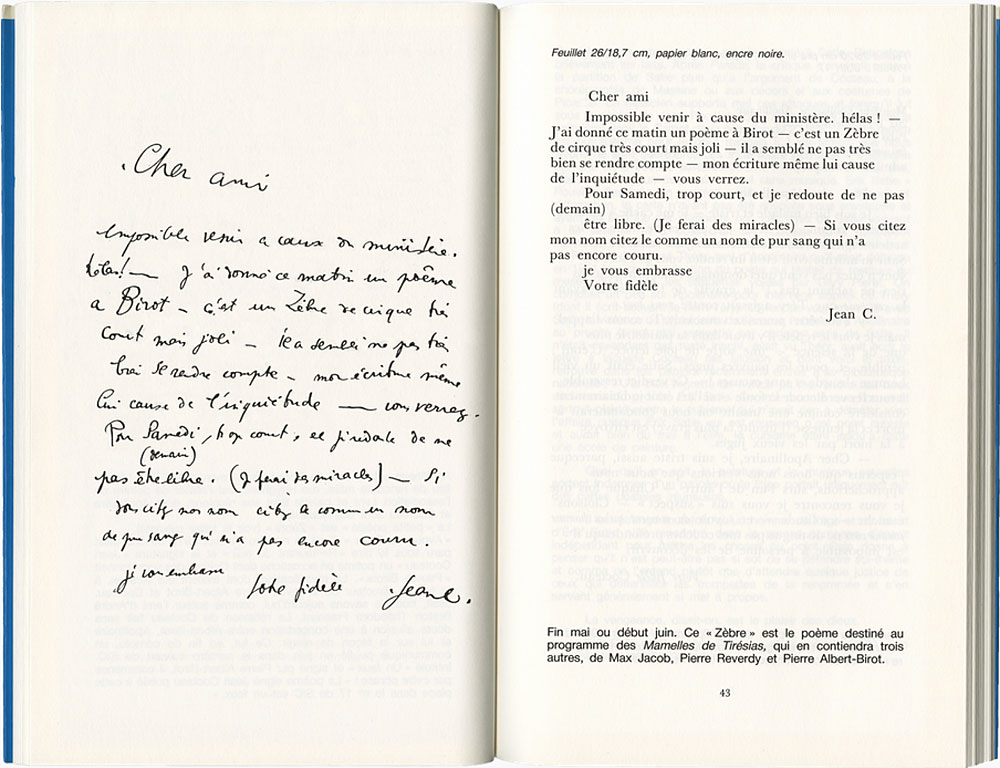 Cher ami
Impossible venir a cause du ministère.
hélas! — J'ai donné ce matin un poème
a Birot — c'est un Zèbre de cirque très
court mais joli — il a semblé ne pas très
bien se rendre compte — mon écriture même
lui cause de l'inquiétude — vous verrez.
Pour Samedi, trop court, et je redoute de ne
(demain)
pas être libre. (Je ferai des miracles) — Si
vous citez mon nom citez le comme un nom
de pur sang qui n'a pas encore couru.
je vous embrasse
Votre fidèle Jean C.
Feuillet 26/18,7 cm, papier blanc, encre noire.
Cher ami
Impossible venir à cause du ministère. hélas ! —
J'ai donné ce matin un poème à Birot — c'est un Zèbre
de cirque très court mais joli — il a semblé ne pas très
bien se rendre compte — mon écriture même lui cause
de l'inquiétude — vous verrez.
Pour Samedi, trop court, et je redoute de ne pas
(demain)
être libre. (Je ferai des miracles) — Si vous citez
mon nom citez le comme un nom de pur sang qui n'a
pas encore couru.
je vous embrasse
Votre fidèle
Jean C.
Fin mai ou début juin. Ce « Zèbre » est le poème destiné au
programme des Mamelles de Tirésias, qui en contiendra trois
autres, de Max Jacob, Pierre Reverdy et Pierre Albert-Birot.
43